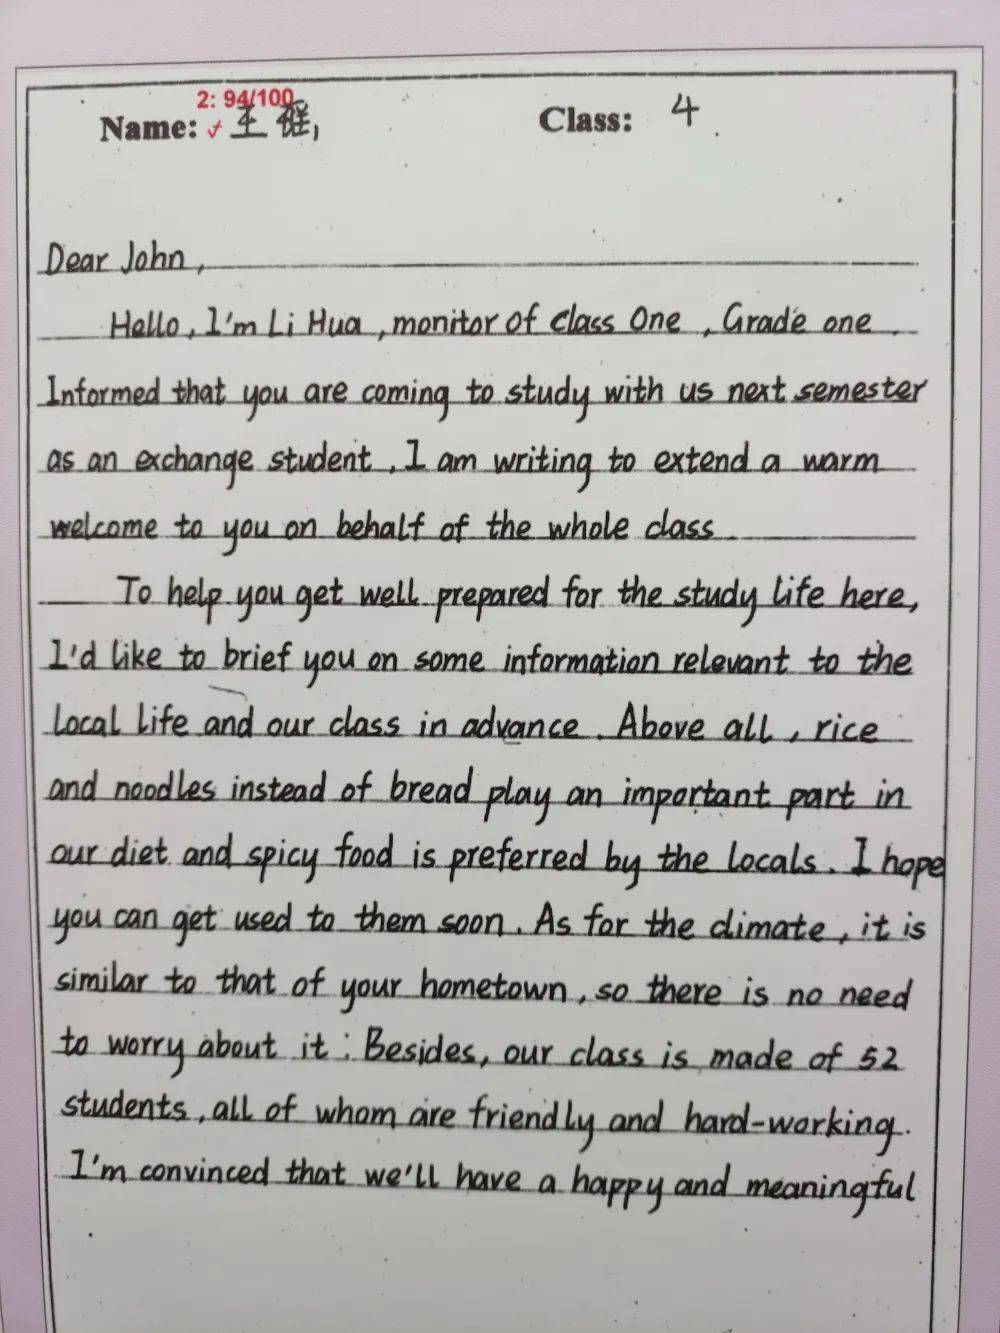 2: 94/100
Name: 王 Class: 4
Dear John,
Hello, I'm Li Hua, monitor of class One, Grade one.
Informed that you are coming to study with us next semester
as an exchange student, I am writing to extend a warm
welcome to you on behalf of the whole class.
To help you get well prepared for the study life here,
I'd like to brief you on some information relevant to the
local life and our class in advance. Above all, rice
and noodles instead of bread play an important part in
our diet and spicy food is preferred by the locals. I hope
you can get used to them soon. As for the climate, it is
similar to that of your hometown, so there is no need
to worry about it. Besides, our class is made of 52
students, all of whom are friendly and hard-working.
I'm convinced that we'll have a happy and meaningful